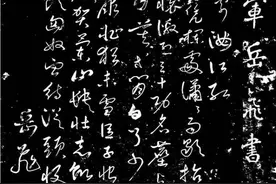 軍岳飛書
滿江紅
憑欄處瀟瀟雨歇抬
懷激烈三十功名塵土
莫等閒白了少
恥猶未雪臣子恨
賀蘭山缺壯志飢
匈奴血待從頭收
岳飛